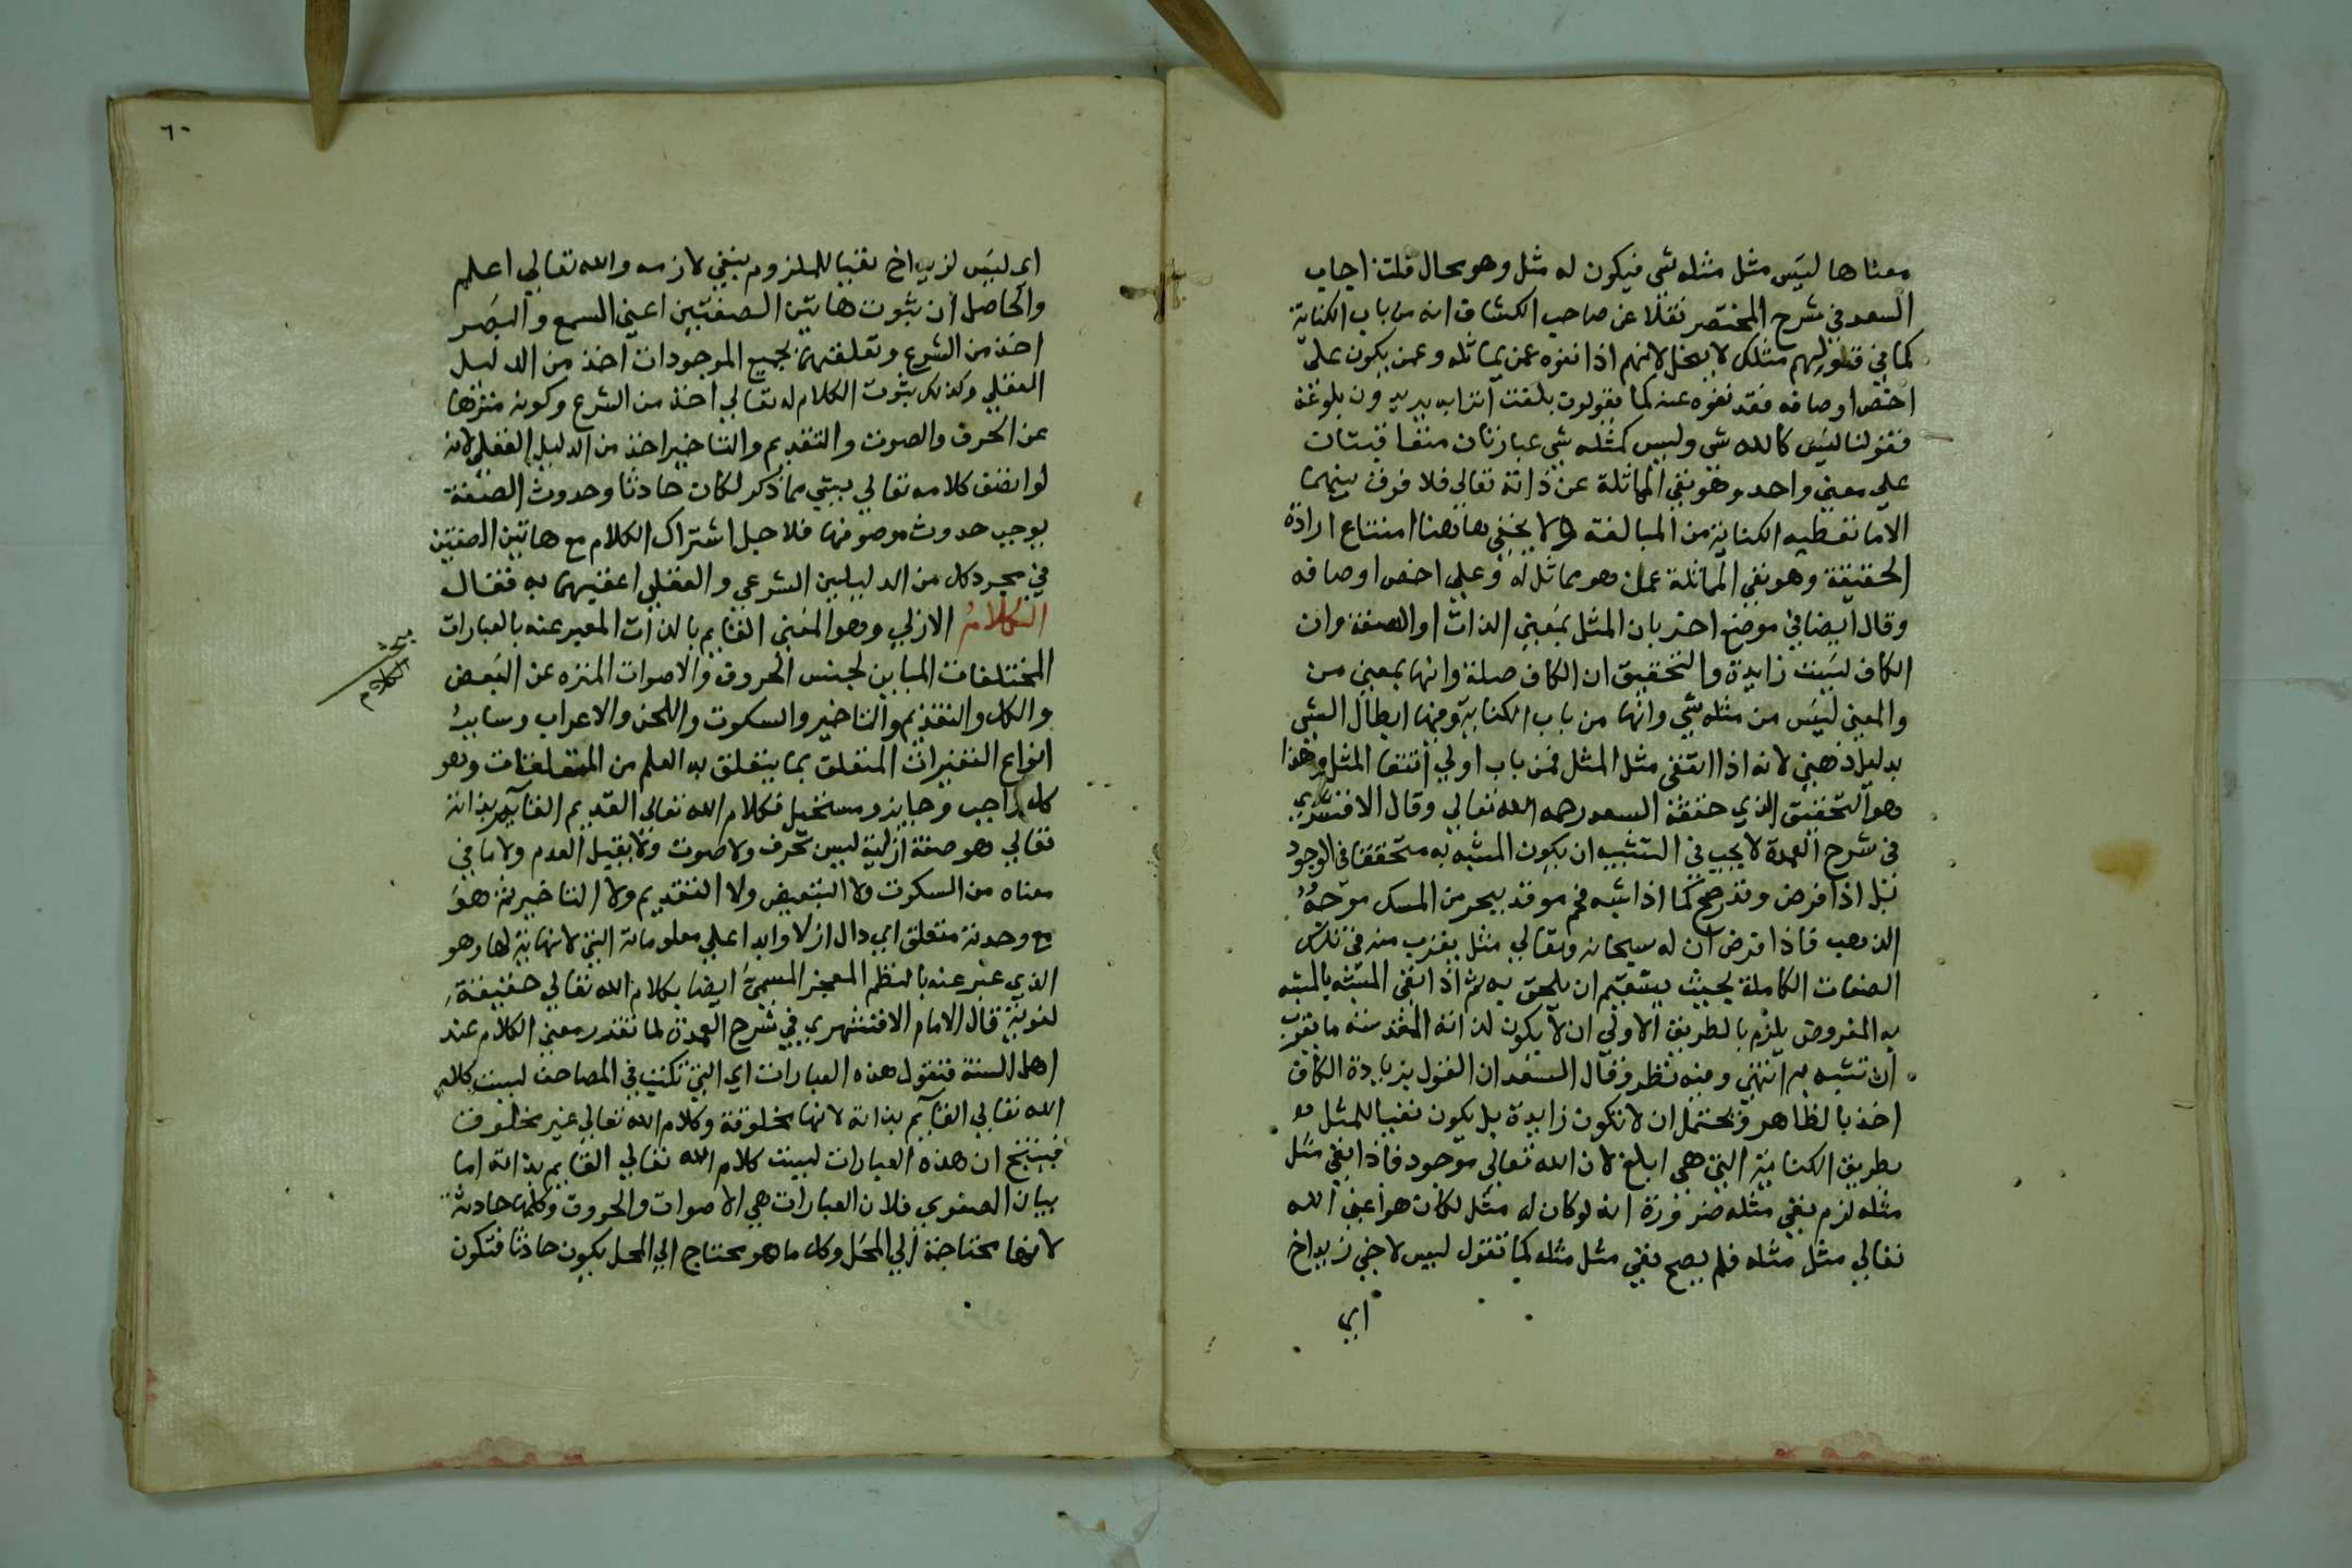 معناها ليس مثل مثله شي فيكون له مثل وهو محال قلت اجاب
السعد في شرح المختصر نقلا عن صاحب الكشاف انه من باب الكناية
كما في قولهم مثلك لا يبخل لانهم اذا نفوه عمن يماثله وعمن يكون على
اخص اوصافه فقد نفوه عنه كما يقولون بلغت اترابه يريدون بلوغه
فقولنا ليس كالله شي وليس كمثله شي عبارتان متعاقبتان
علي معني واحد وهو نفي المماثلة عن ذاته تعالي فلا فرق بينهما
الا ما تعطيه الكناية من المبالغة ولا يخفي هاهنا امتناع ارادة
الحقيقة وهو نفي المماثلة عمن هو مماثل له وعلي اخص اوصافه
وقال ايضا في موضع اخر بان المثل بمعني الذات او الصفة وان
الكاف ليست زايدة والتحقيق ان الكاف صلة وانها بمعني من
والمعني ليس من مثله شي وانها من باب الكناية وفيها ابطال الشي
بدليل ذهني لانه اذا انتفى مثل المثل فمن باب اولي انتفا المثل وهذا
هو التحقيق الذي حققه السعد رحمه الله تعالي وقال الاقشهري
في شرح العمدة لا يجب في التشبيه ان يكون المشبه به متحققا في الوجود
بل اذا فرض وقدر صح كما اذا شبه فحم موقد ببحر من المسك موجه
الذهب فاذا فرض ان له سبحانه وتعالي مثل يقرب منه في تلك
الصفات الكاملة بحيث يستقيم ان يلحق به ثم اذا نفي المشبه بالمشبه
به المفروض يلزم بالطريق الاولي ان لا يكون لذاته المقدسة ما يقرب
ان تشبه به انتهي وفيه نظر وقال السعد ان القول بزيادة الكاف
اخذ بالظاهر ويحتمل ان لا تكون زايدة بل يكون نفيا للمثل
بطريق الكناية التي هي ابلغ لان الله تعالي موجود فاذا نفي مثل
مثله لزم نفي مثله ضرورة انه لو كان له مثل لكان هو اعني الله
تعالي مثل مثله فلم يصح نفي مثل مثله كما تقول ليس لاخي زيد اخ
اي
٦٠
اي ليس لزيد اخ نفيا للملزوم بنفي لازمه والله تعالي اعلم
والحاصل ان ثبوت هاتين الصفتين اعني السمع والبصر
اخذ من الشرع وتعلقهما بجميع الموجودات اخذ من الدليل
العقلي وكذلك ثبوت الكلام له تعالي اخذ من الشرع وكونه منزها
عن الحرف والصوت والتقديم والتاخير اخذ من الدليل العقلي لانه
لو اتصف كلامه تعالي بشي مما ذكر لكان حادثا وحدوث الصفة
يوجب حدوث موصوفها فلاجل اشتراك الكلام مع هاتين الصفتين
في مجرد كل من الدليلين الشرعي والعقلي اعقبهما به فقال
الكلام الازلي وهو المعني القايم بالذات المعبر عنه بالعبارات
المختلفات المباين لجنس الحروف والاصوات المنزه عن البعض
والكل والتقديم والتاخير والسكوت واللحن والاعراب وساير
انواع التغيرات المتعلق بما يتعلق به العلم من المتعلقات وهو
كل واجب وجايز ومستحيل فكلام الله تعالي القديم القايم بذاته
تعالي هو صفة ازلية ليس بحرف ولا صوت ولا يقبل العدم ولا ما في
معناه من السكوت ولا التبعيض ولا التقديم ولا التاخير ثم هو
مع وحدته متعلق اي دال ازلا وابدا علي معلوماته التي لا نهاية لها وهو
الذي عبر عنه بالنظم المعجز المسمى ايضا بكلام الله تعالي حقيقة
لغوية قال الامام الاقشهري في شرح العمدة لما تقدر معني الكلام عند
اهل السنة فنقول هذه العبارات اي التي تكتب في المصاحف ليست كلام
الله تعالي القايم بذاته لانها مخلوقة وكلام الله تعالي غير مخلوق
فينتج ان هذه العبارات ليست كلام الله تعالي القايم بذاته اما
بيان الصغري فلان العبارات هي الاصوات والحروف وكلها حادثة
لانها محتاجة الي المحل وكل ما هو محتاج الي المحل يكون حادثا فتكون
مبحث
الكلام